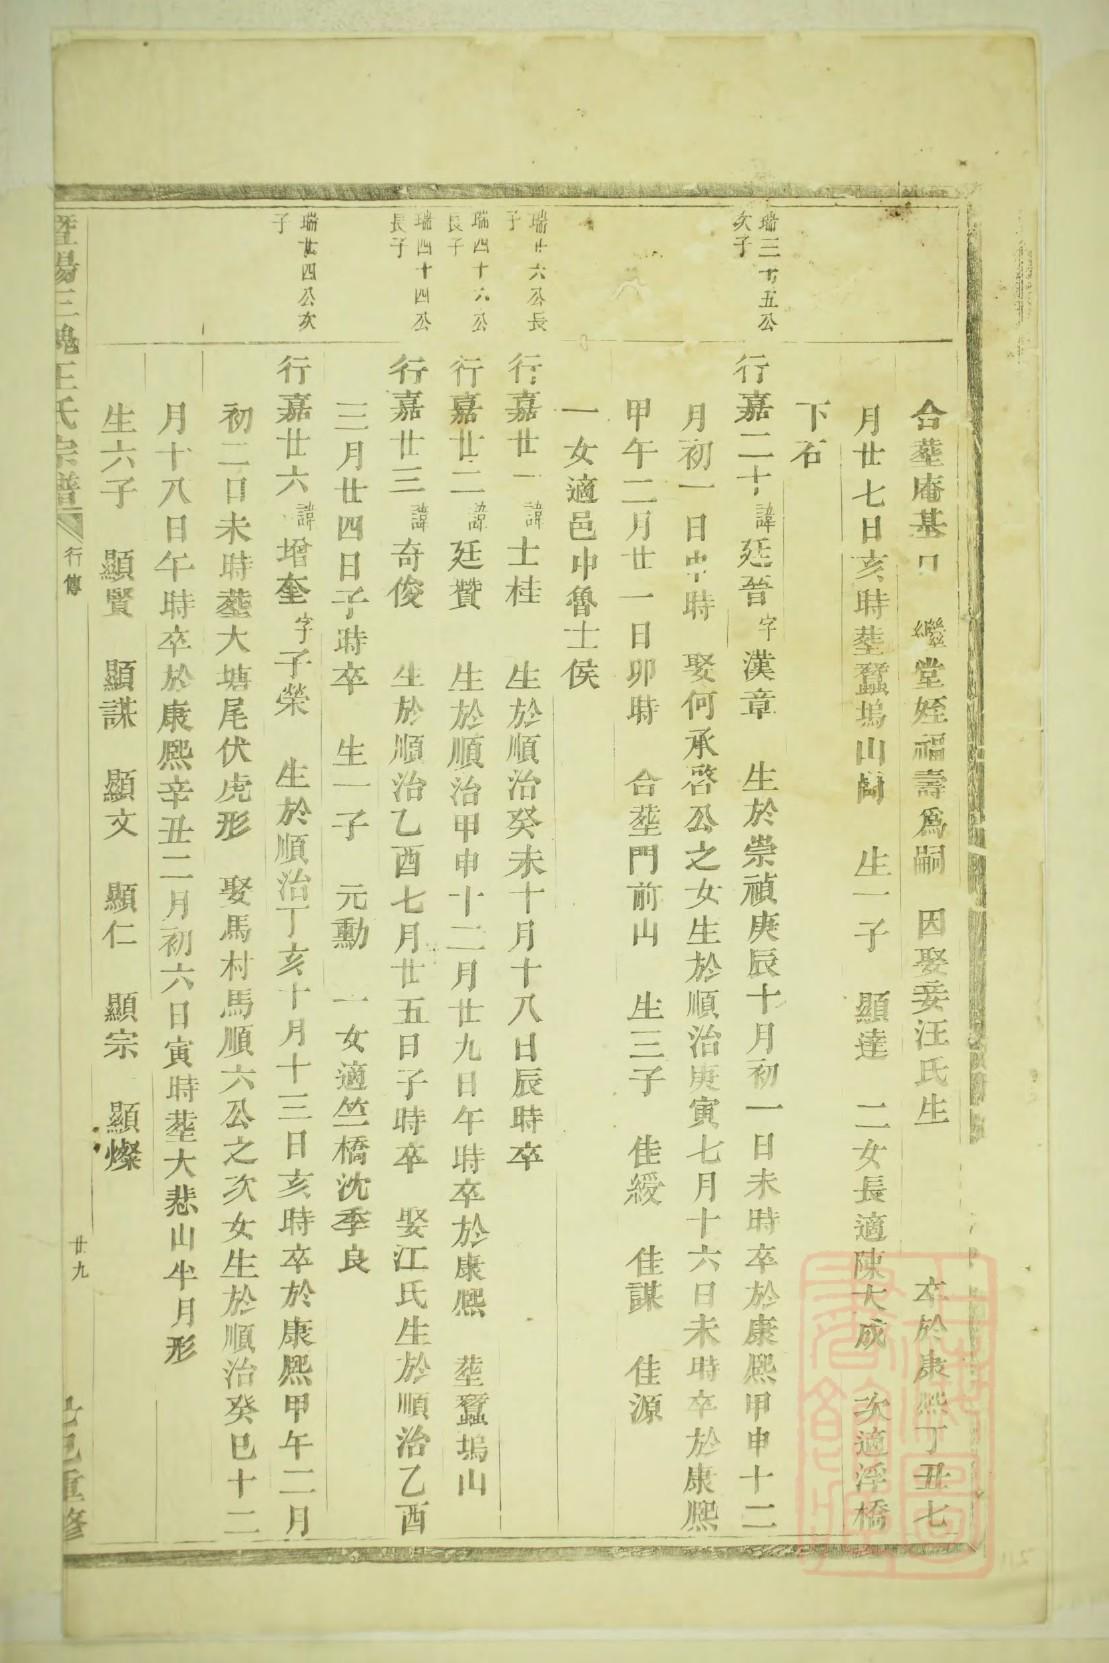 合塟庵基口 繼堂姪福壽爲嗣 因娶妾汪氏生 卒於康熙丁丑七
月廿七日亥時塟蠶塢山 生一子 顯達 二女長適陳大成 次適浮橋
下石
瑞三十五公
次子
行嘉二十諱廷晉字漢章 生於崇禎庚辰十月初一日未時卒於康熙甲申十二
月初一日申時 娶何承啓公之女生於順治庚寅七月十六日未時卒於康熙
甲午二月廿一日卯時 合塟門前山 生三子 佳綬 佳謀 佳源
一女適邑中魯士侯
瑞廿六公長
子
行嘉廿一諱士桂 生於順治癸未十月十八日辰時卒
瑞四十六公
長子
行嘉廿二諱廷贊 生於順治甲申十二月廿九日午時卒於康熙 塟蠶塢山
瑞四十四公
長子
行嘉廿三諱奇俊 生於順治乙酉七月廿五日子時卒 娶江氏生於順治乙酉
三月廿四日子時卒 生一子 元勳 一女適竺橋沈季良
瑞廿四公次
子
行嘉廿六諱增奎字子榮 生於順治丁亥十月十三日亥時卒於康熙甲午二月
初二日未時塟大塘尾伏虎形 娶馬村馬順六公之次女生於順治癸巳十二
月十八日午時卒於康熙辛丑二月初六日寅時塟大悲山半月形
生六子 顯賢 顯謀 顯文 顯仁 顯宗 顯燦
暨陽三槐王氏宗譜 行傳 廿九 乙巳重修